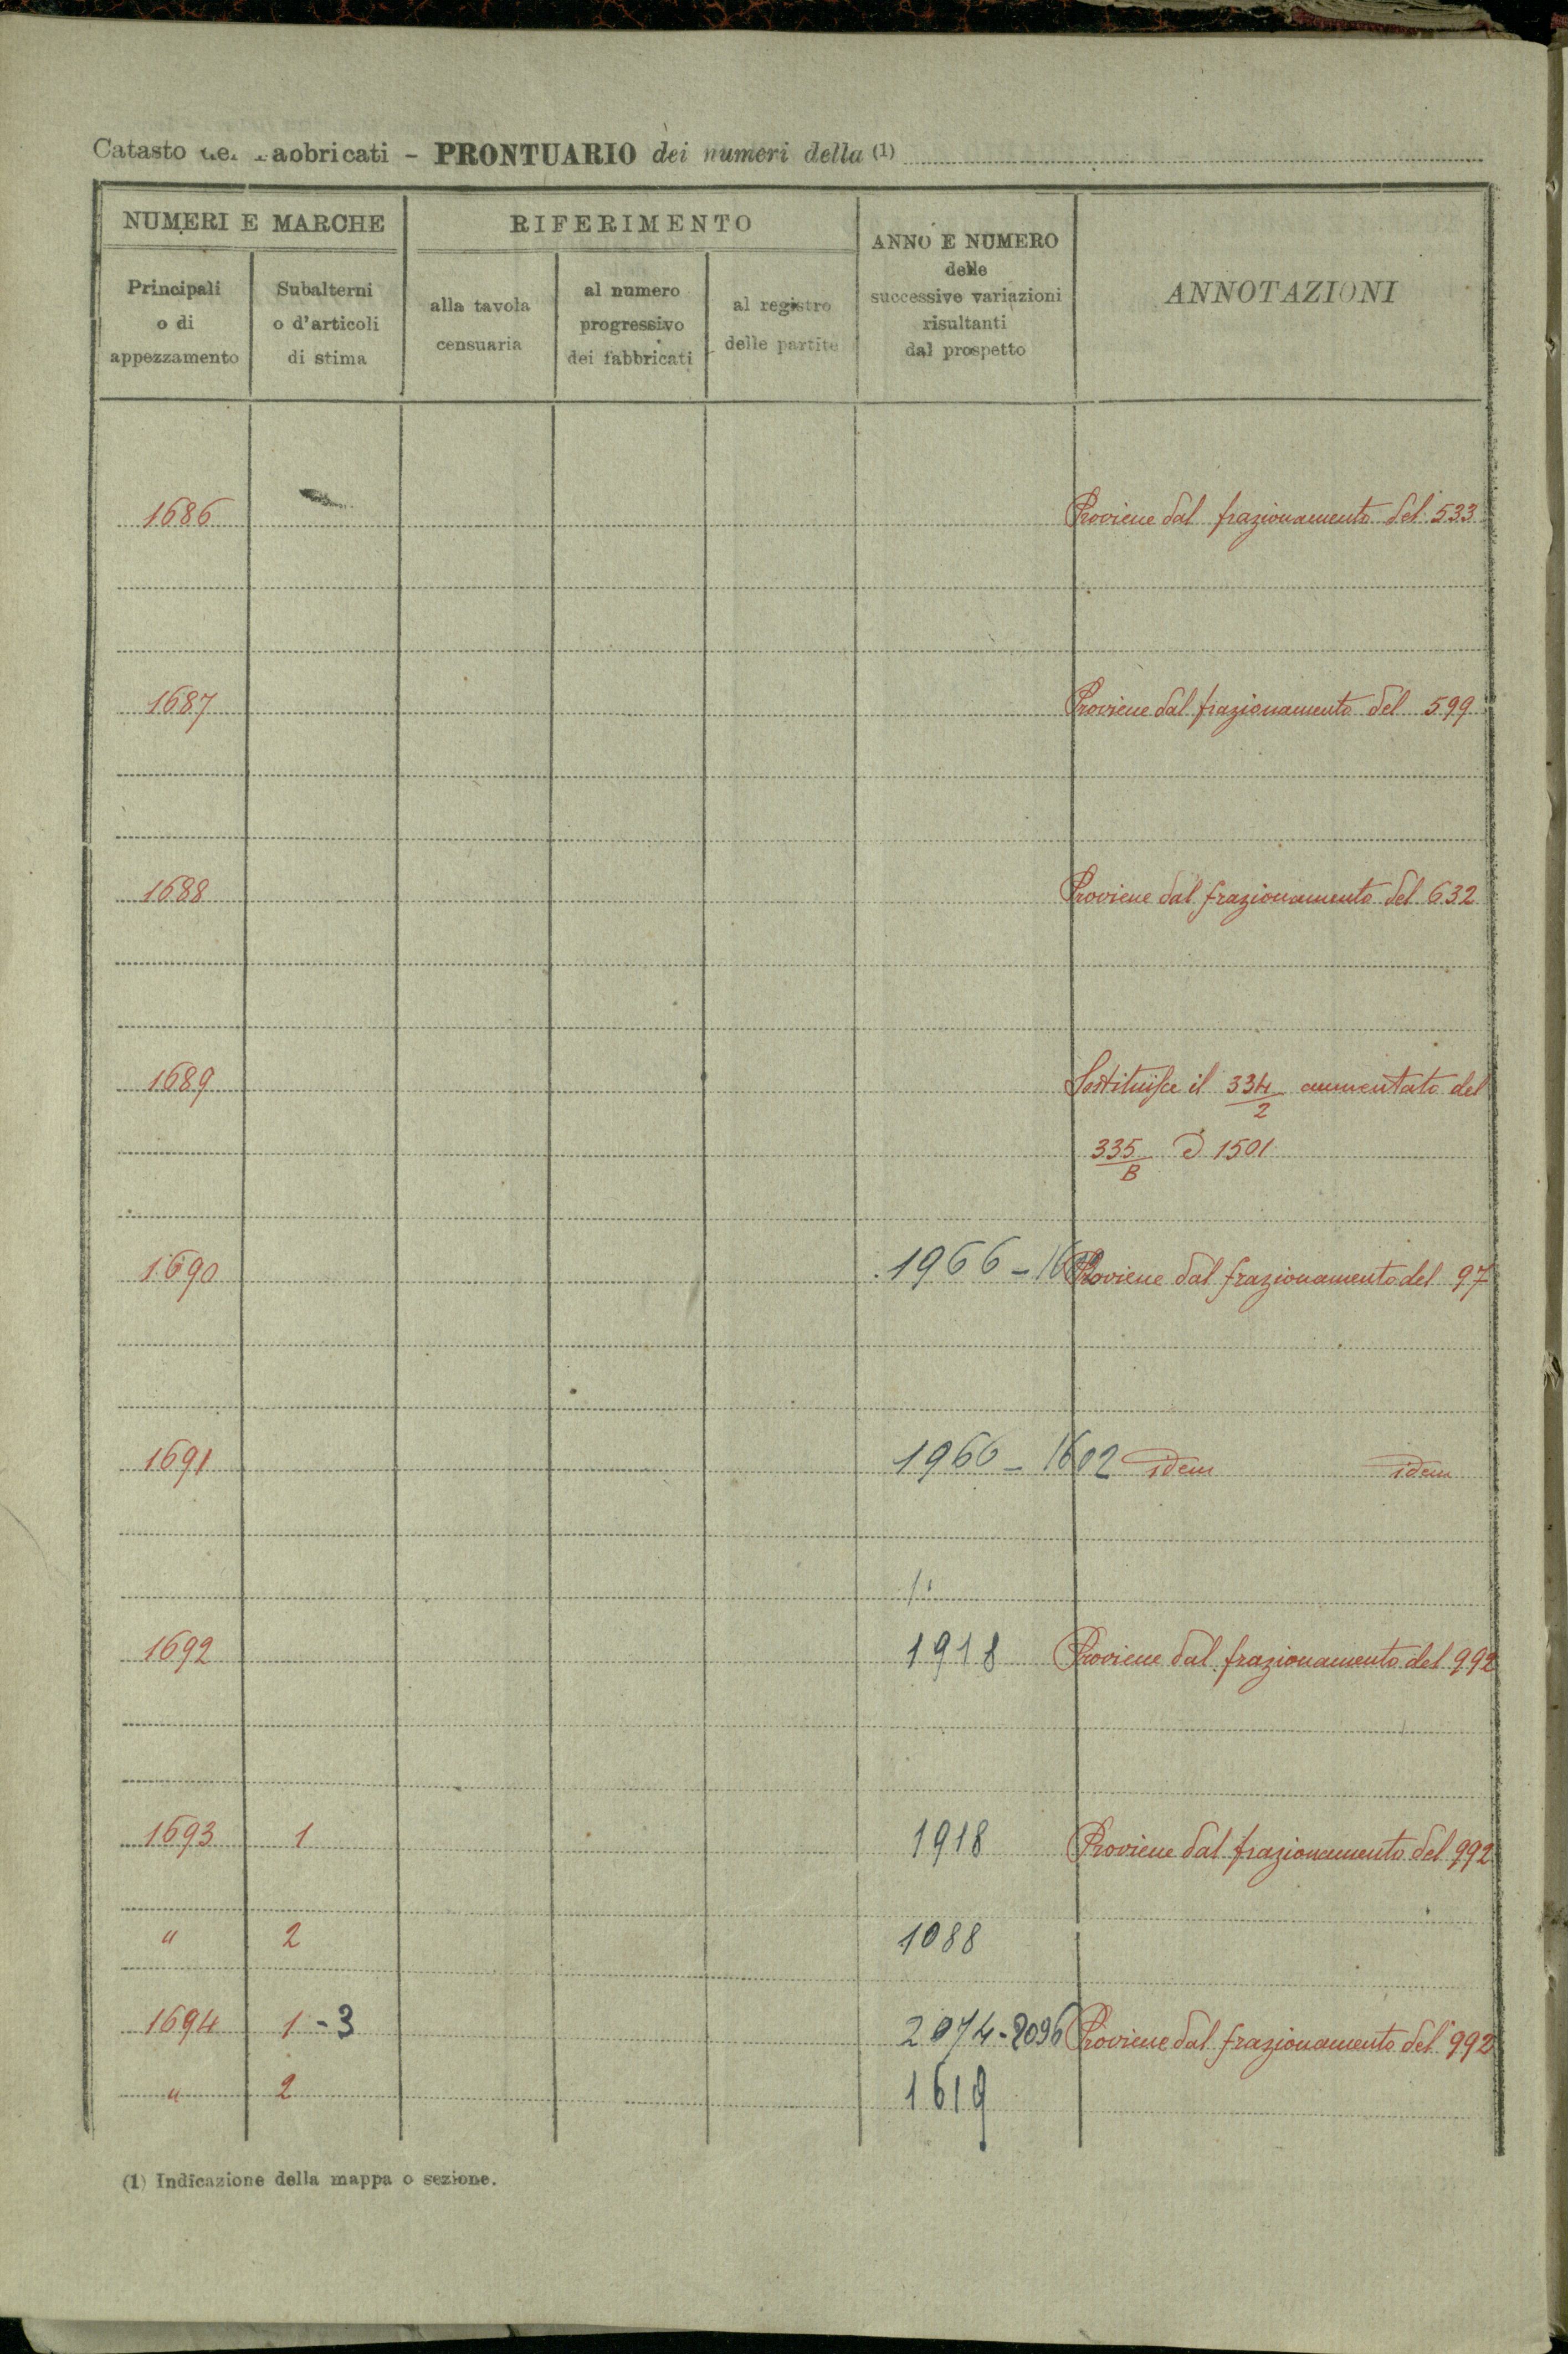 Catasto dei Fabbricati - PRONTUARIO dei numeri della (1)
NUMERI E MARCHE
RIFERIMENTO
ANNO E NUMERO
delle
successive variazioni
risultanti
dal prospetto
ANNOTAZIONI
Principali
o di
appezzamento
Subalterni
o d'articoli
di stima
alla tavola
censuaria
al numero
progressivo
dei fabbricati
al registro
delle partite
1686 Proviene dal frazionamento del 533
1687 Proviene dal frazionamento del 599
1688 Proviene dal frazionamento del 632
1689 Sostituisce il 334/2 aumentato del
335/B 1501
1690 1966 - Proviene dal frazionamento del 97
1691 1966 - 1602 idem idem
1692 1918 Proviene dal frazionamento del 992
1693 1 1918 Proviene dal frazionamento del 992
" 2 1088
1694 1 - 3 2074 - 2096 Proviene dal frazionamento del 992
" 2 1619
(1) Indicazione della mappa o sezione.